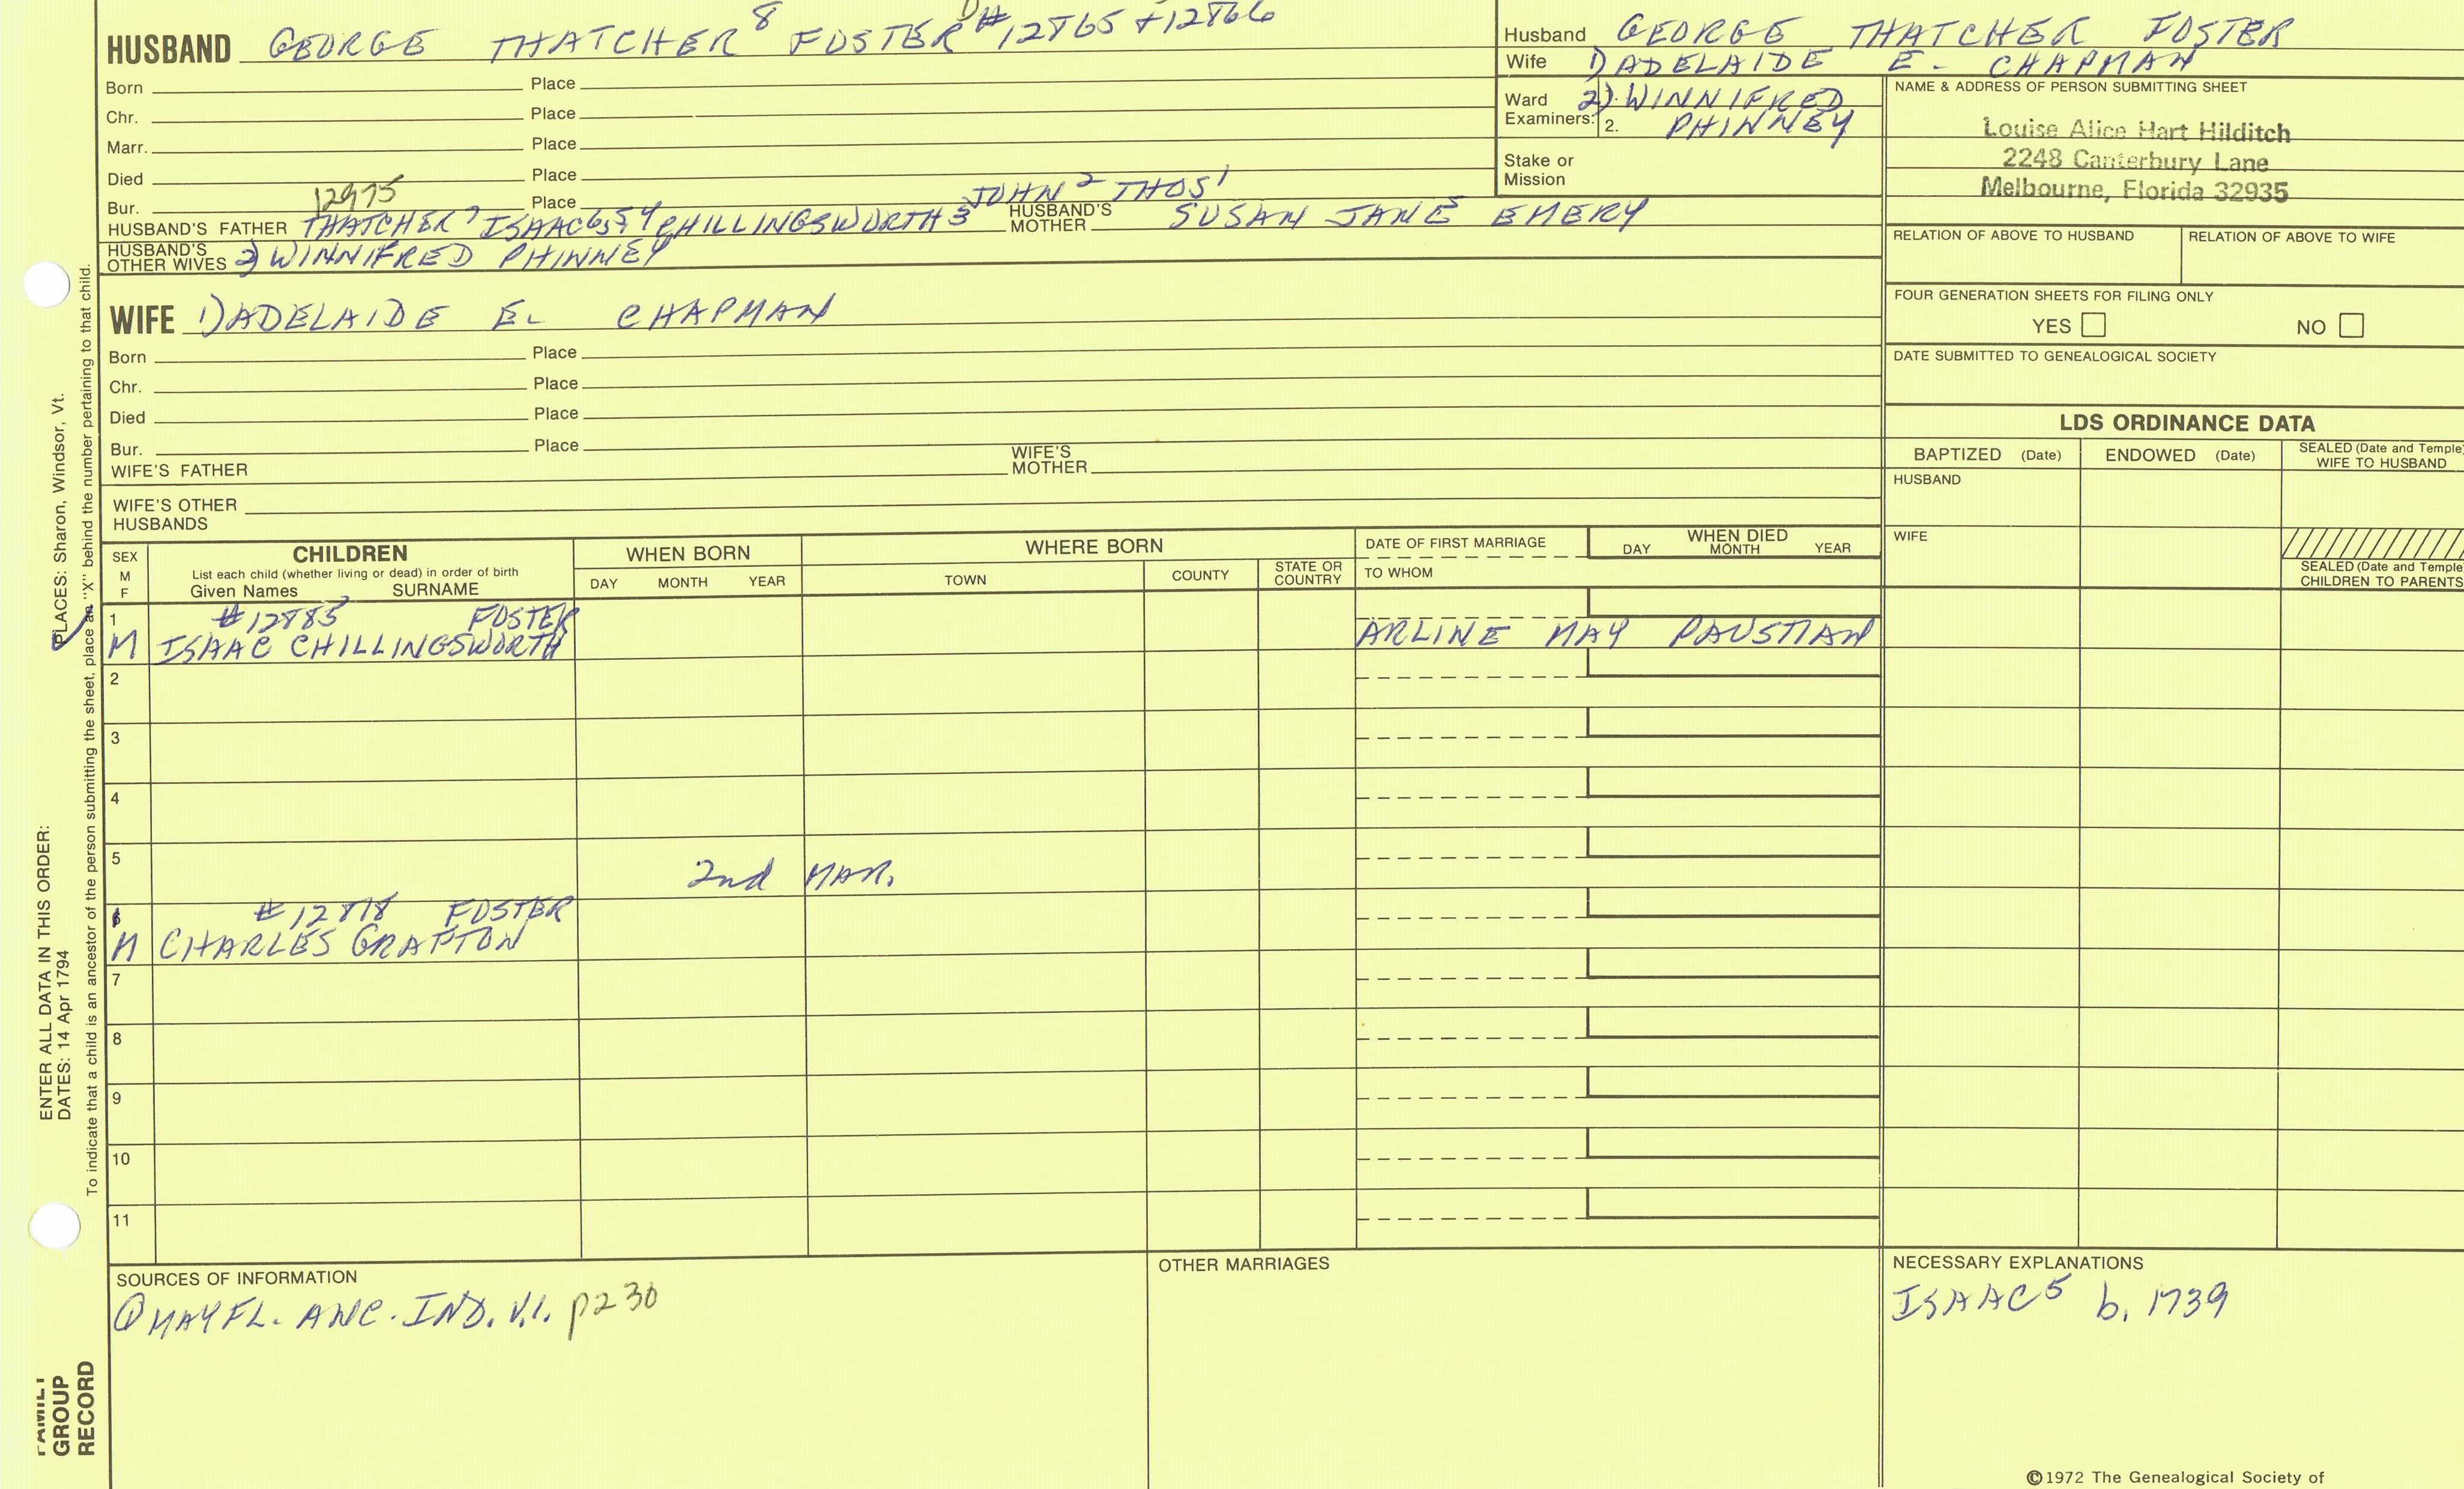 HUSBAND GEORGE THATCHER⁸ FOSTER #12865 + 12866
Born Place
Chr. Place
Marr. Place
Died Place
12975
Bur. Place
JOHN² THOS¹
HUSBAND'S FATHER THATCHER⁷ ISAAC⁶,⁵,⁴ CHILLINGSWORTH³ HUSBAND'S MOTHER SUSAN JANE EMERY
HUSBAND'S OTHER WIVES 2) WINNIFRED PHINNEY
WIFE 1) ADELAIDE E. CHAPMAN
Born Place
Chr. Place
Died Place
Bur. Place
WIFE'S FATHER WIFE'S MOTHER
WIFE'S OTHER HUSBANDS
Husband GEORGE THATCHER FOSTER
Wife 1) ADELAIDE E. CHAPMAN
Ward 2) WINNIFRED
Examiners: 2. PHINNEY
Stake or
Mission
NAME & ADDRESS OF PERSON SUBMITTING SHEET
Louise Alice Hart Hilditch
2248 Canterbury Lane
Melbourne, Florida 32935
RELATION OF ABOVE TO HUSBAND RELATION OF ABOVE TO WIFE
FOUR GENERATION SHEETS FOR FILING ONLY
YES NO
DATE SUBMITTED TO GENEALOGICAL SOCIETY
LDS ORDINANCE DATA
BAPTIZED (Date) ENDOWED (Date) SEALED (Date and Temple) WIFE TO HUSBAND
HUSBAND
WIFE
SEALED (Date and Temple) CHILDREN TO PARENTS
SEX M F
CHILDREN
List each child (whether living or dead) in order of birth
Given Names SURNAME
WHEN BORN
DAY MONTH YEAR
WHERE BORN
TOWN COUNTY STATE OR COUNTRY
DATE OF FIRST MARRIAGE
TO WHOM
WHEN DIED
DAY MONTH YEAR
1 #12885 FOSTER
M ISAAC CHILLINGSWORTH ARLINE MAY PAUSTIAN
2
3
4
5
2nd MAR.
6 #12878 FOSTER
M CHARLES GRAFTON
7
8
9
10
11
SOURCES OF INFORMATION
① MAYFL. ANC. IND. V.1. p230
OTHER MARRIAGES
NECESSARY EXPLANATIONS
ISAAC⁵ b. 1739
©1972 The Genealogical Society of
ENTER ALL DATA IN THIS ORDER:
DATES: 14 Apr 1794 PLACES: Sharon, Windsor, Vt.
To indicate that a child is an ancestor of the person submitting the sheet, place an "X" behind the number pertaining to that child.
FAMILY
GROUP
RECORD